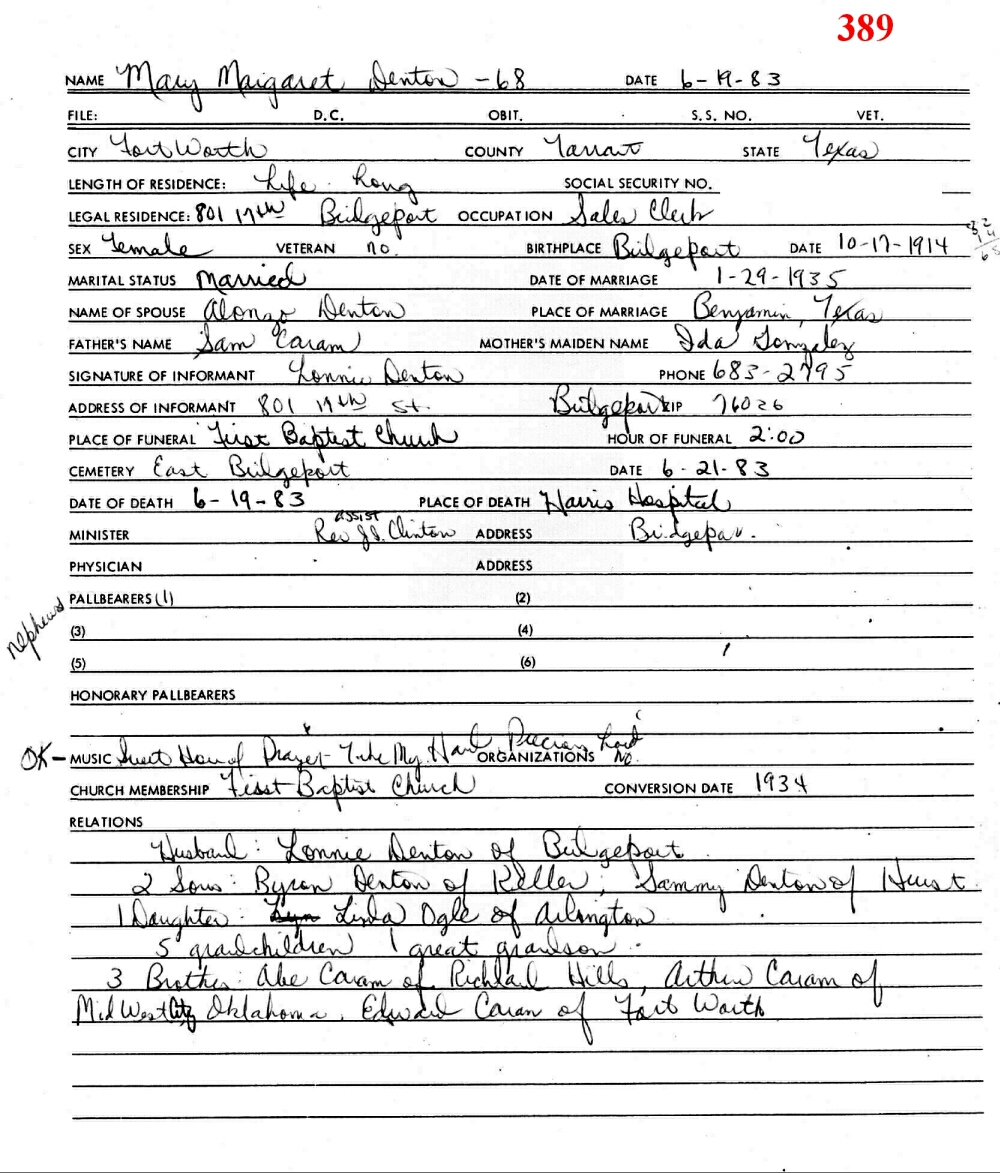 389
NAME Mary Margaret Denton - 68 DATE 6-19-83
FILE: D.C. OBIT. S.S. NO. VET.
CITY Fort Worth COUNTY Tarrant STATE Texas
LENGTH OF RESIDENCE: Life Long SOCIAL SECURITY NO.
LEGAL RESIDENCE: 801 17th Bridgeport OCCUPATION Sales Clerk
SEX Female VETERAN no. BIRTHPLACE Bridgeport DATE 10-17-1914
MARITAL STATUS Married DATE OF MARRIAGE 1-29-1935
NAME OF SPOUSE Alonzo Denton PLACE OF MARRIAGE Benjamin, Texas
FATHER'S NAME Sam Caram MOTHER'S MAIDEN NAME Ida Gonzalez
SIGNATURE OF INFORMANT Lonnie Denton PHONE 683-2795
ADDRESS OF INFORMANT 801 17th St. Bridgeport ZIP 76026
PLACE OF FUNERAL First Baptist Church HOUR OF FUNERAL 2:00
CEMETERY East Bridgeport DATE 6-21-83
DATE OF DEATH 6-19-83 PLACE OF DEATH Harris Hospital
assist
MINISTER Rev. Clinton ADDRESS Bridgepor.
PHYSICIAN ADDRESS
nephews PALLBEARERS (1) (2)
(3) (4)
(5) (6)
HONORARY PALLBEARERS
OK- MUSIC Sweet Hour of Prayer - Take My Hand Precious Lord ORGANIZATIONS No.
CHURCH MEMBERSHIP First Baptist Church CONVERSION DATE 1934
RELATIONS
Husband: Lonnie Denton of Bridgeport
2 Sons: Byron Denton of Keller; Sammy Denton of Hurst
1 Daughter: Linda Ogle of Arlington
5 grandchildren 1 great grandson
3 Brothers: Abe Caram of Richland Hills, Arthur Caram of
Mid West City Oklahoma, Edward Caram of Fort Worth